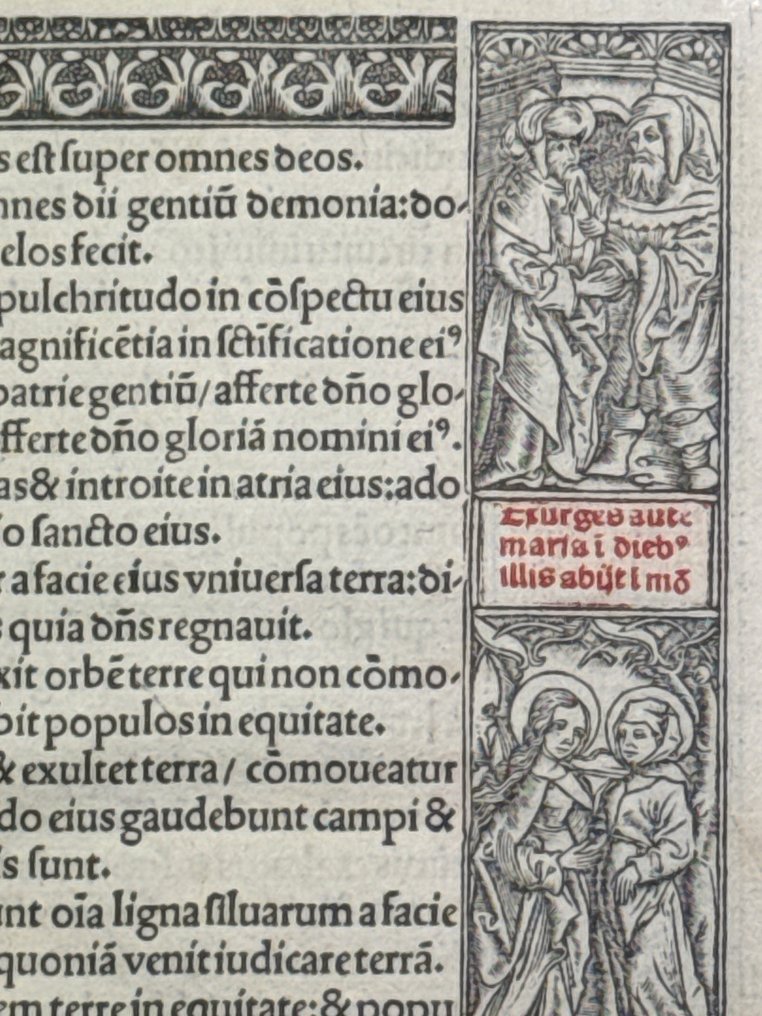 s est super omnes deos.
nnes dii gentiū demonia:do-
elos fecit.
pulchritudo in cōspectu eius
agnificētia in sctīficatione eiꝰ
patrie gentiū/ afferte dn̄o glo-
fferte dn̄o gloriā nomini eiꝰ.
as & introite in atria eius:ado
o sancto eius.
r a facie eius vniuersa terra:di-
s quia dn̄s regnauit.
xit orbē terre qui non cōmo-
bit populos in equitate.
& exultet terra/ cōmoueatur
do eius gaudebunt campi &
is sunt.
unt oīa ligna siluarum a facie
quoniā venit iudicare terrā.
em terre in equitate:& popu
Exurges autē
maria ī diebꝰ
illis abijt ī mō